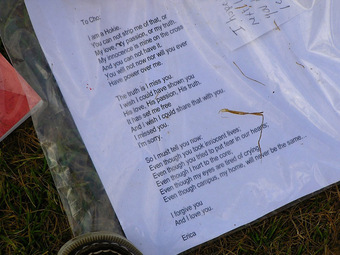 To Cho,
I am a Hokie.
You can not strip me of that, or
My love, my passion, or my truth.
My innocence is mine on the cross
And you can not have it.
You will not now nor will you ever
Have power over me.
The truth is I miss you.
I wish I could have shown you
His love, His passion, His truth.
It has set me free
And I wish I could share that with you.
I missed you.
I'm sorry.
So I must tell you now:
Even though you took innocent lives,
Even though you tried to put fear in our hearts,
Even though I hurt to the core,
Even though my eyes are tired of crying,
Even though campus, my home, will never be the same...
I forgive you
And I love you.
Erica